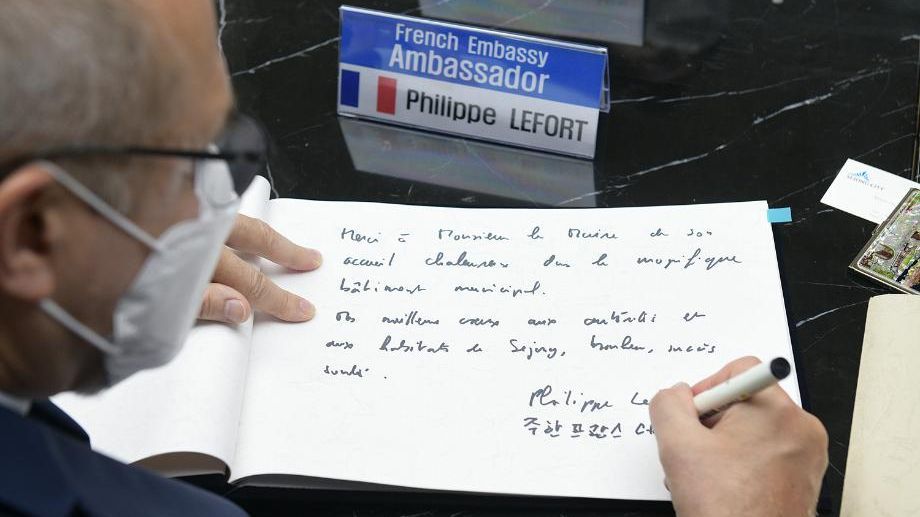 French Embassy
Ambassador
Philippe LEFORT
SEJONG CITY
Merci à Monsieur le Maire de son
accueil chaleureux dans le magnifique
bâtiment municipal.
Mes meilleurs voeux aux autorités et
aux habitants de Sejong, bonheur, succès
santé.
Philippe Le
주한 프랑스 대